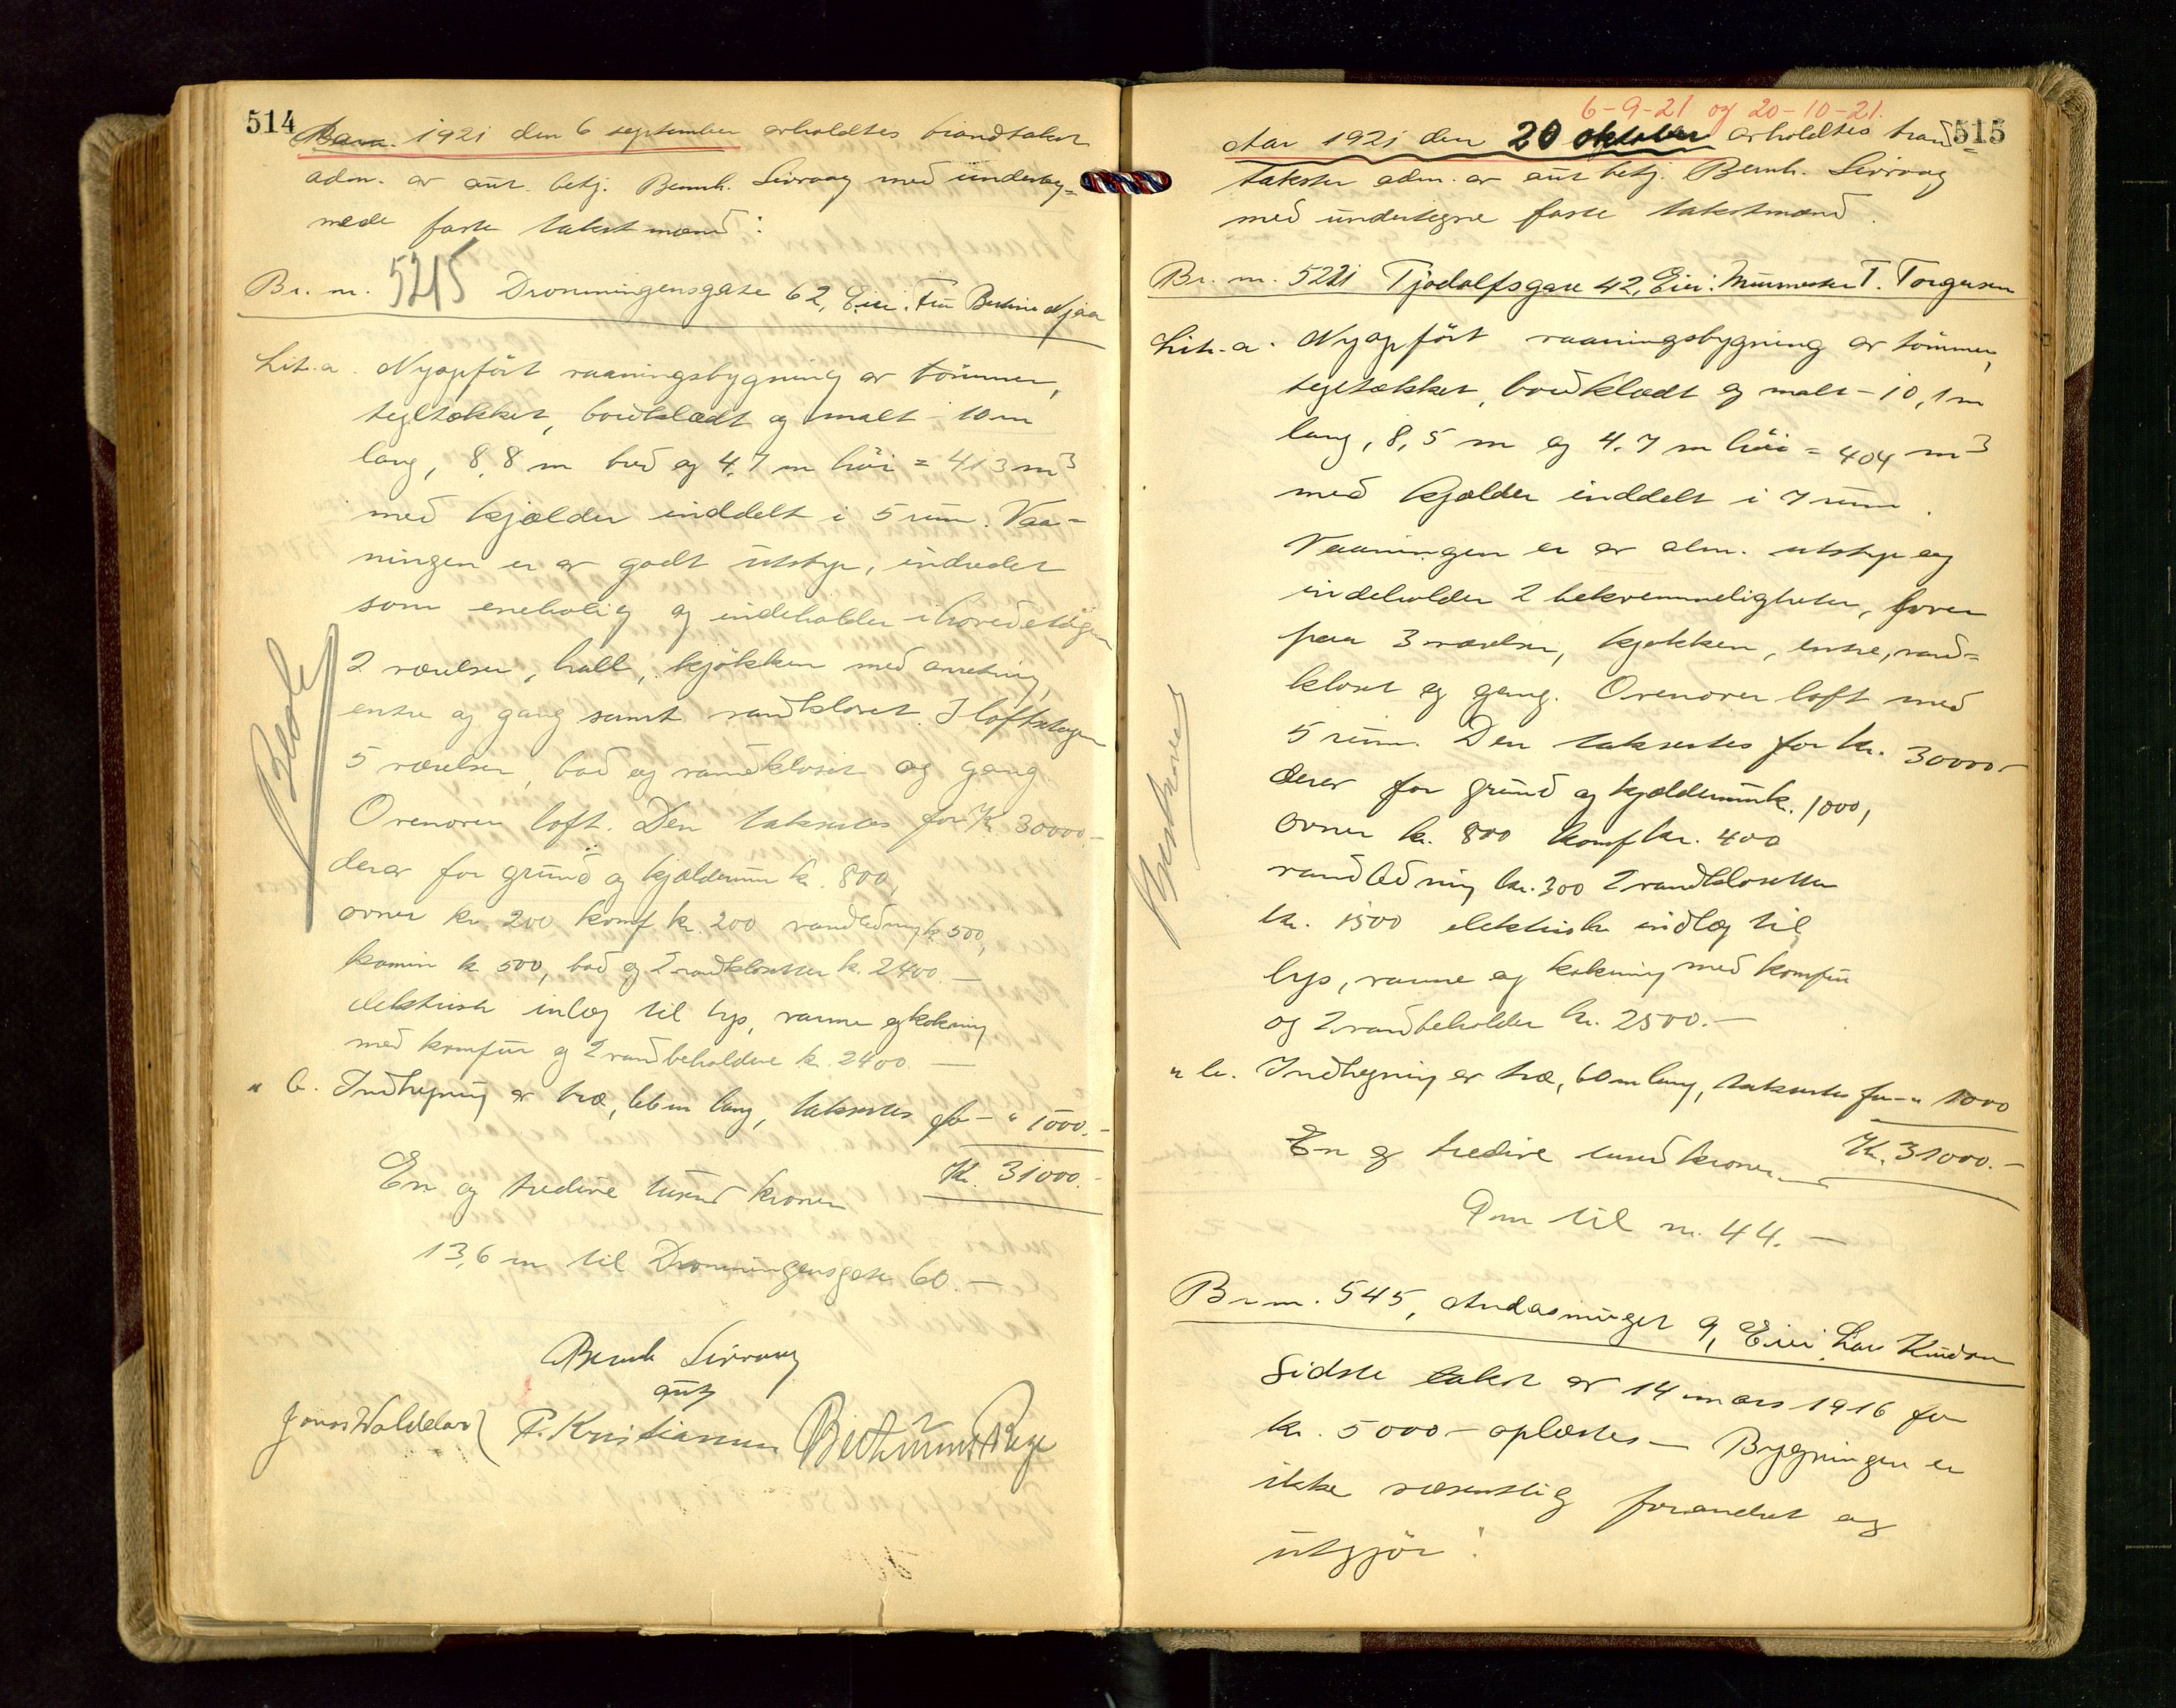 514
1921 den 6 september avholdtes brandtakst
adm. av aut. betj. Bernh. Sivraag med underteg=
nede faste takstmænd:
Br. nr. 5215 Dronningensgate 62, Eier: Fru Njaa
Lit. a. Nyopført vaaningsbygning av tömmer,
tegltækket, bordklædt og malt - 10 m
lang, 8,8 m bred og 4,7 m höi = 413 m3
med kjælder inddelt i 5 rum. Vaa=
ningen er av godt utstyr, indredet
som enebolig og indeholder i hovedetagen
2 værelser, hall, kjökken med anretning,
entre og gang samt vandkloset. I loftsetagen
5 værelser, bad og vandkloset og gang.
Ovenover loft. Den takseres for Kr. 30000.-
derav for grund og kjælderrum kr. 800,
ovner kr. 200 komf kr. 200 vandledning kr. 500,
kamin kr 500, bad og 2 vandklosetter kr. 2400.-
elektrisk inlæg til lys, varme og kokning
med komfur og 2 vandbeholdere kr. 2400.-
" b. Indhegning av træ, 66 m lang, takseres for - " 1000.-
Kr. 31000.-
En og tredive tusend kroner
13,6 m til Dronningensgate 60.-
Bernh Sivraag
aut
P. Kristiansen
6-9-21 og 20-10-21.
515
Aar 1921 den 20 oktober avholdtes brand=
takster adm. av aut betj. Bernh. Sivraag
med undertegne faste takstmænd.
Br. nr. 5221 Tjodolfsgate 42, Eier: Murmester T. Torgersen
Lit. a. Nyopført vaaningsbygning av tömmer,
tegltækket, bordklædt og malt - 10,1 m
lang, 8,5 m og 4,7 m höi = 404 m3
med kjælder inddelt i 7 rum.
Vaaningen er av alm. utstyr og
indeholder 2 bekvemmeligheter, hver
paa 3 værelser, kjøkken, entre, vand=
kloset og gang. Ovenover loft med
5 rum. Den takseres for kr. 30000.-
derav for grund og kjælderrum kr. 1000,
ovner kr. 800 komf kr. 400
vandledning kr. 300 2 vandklosetter
kr. 1500 elektriske indlæg til
lys, varme og kokning med komfur
og 2 vandbeholder kr. 2500.-
" b. Indhegning av træ, 60 m lang, takseres for - " 1000
Kr. 31000.-
En og tredive tusend kroner
9 m til nr. 44.-
Br. nr. 545, 9, Eier: Lars Knudsen
Sidste takst av 14 mars 1916 for
kr. 5000 - oplæstes - Bygningen er
ikke væsentlig forandret og
utgjör: